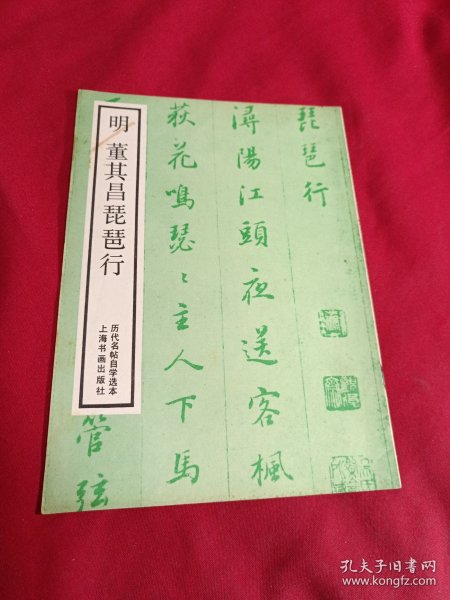 明 董其昌琵琶行
历代名帖自学选本
上海书画出版社
琵琶行
潯陽江頭夜送客楓
荻花鳴瑟〻主人下馬
管弦
孔夫子旧书网
www.kongfz.com